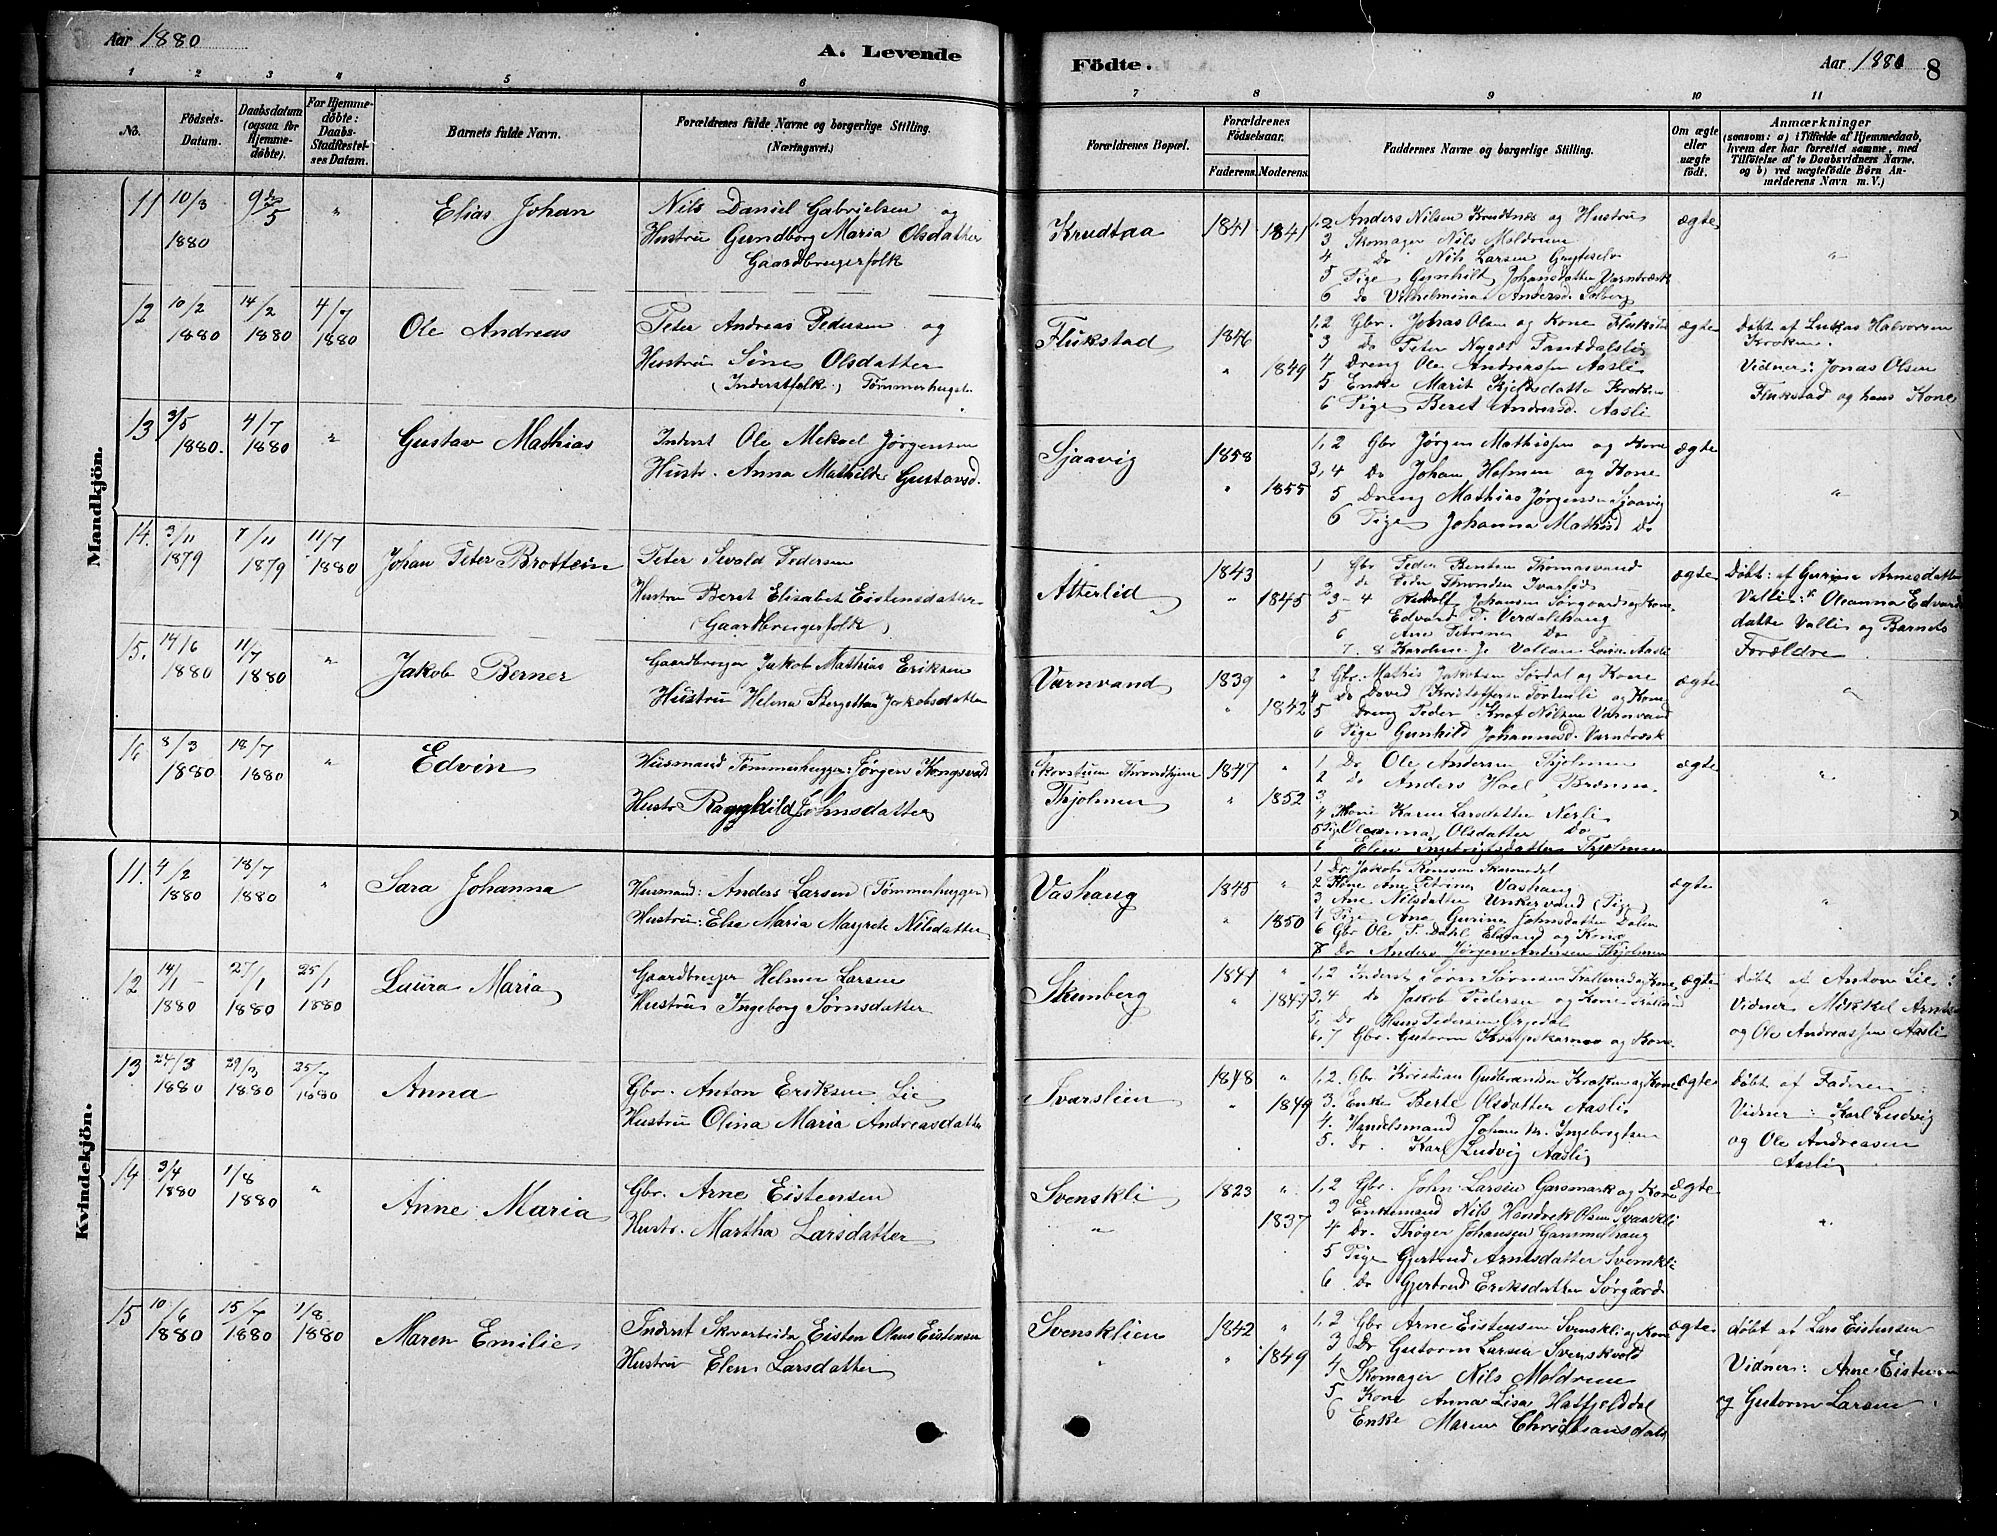 Aar 1880
A. Levende
Födte.
Aar 1880 8
1 2 3 4 5 6 7 8 9 10 11
No.
Födsels-Datum.
Daabsdatum (ogsaa for Hjemme-døbte).
For Hjemme-døbte: Daabs-Stadfæstel-ses Datum.
Barnets fulde Navn.
Forældrenes fulde Navne og borgerlige Stilling.
(Næringsvei.)
Forældrenes Bopæl.
Forældrenes Födselsaar.
Faderens. Moderens.
Faddernes Navne og borgerlige Stilling.
Om ægte eller uægte født.
Anmærkninger
(saasom: a) i Tilfælde af Hjemmedaab,
hvem der har forrettet samme, med
Tilföielse af to Daabsvidners Navne.
og b) ved uægtefödte Börn An-
melderens Navn m. V.)
Mandkjön.
11 10/3 1880 9/5 "
Elias Johan
Nils Daniel Gabrielsen og
Hustru Gundborg Maria Olsdatter
Gaardbrugerfolk
Krudtaa 1841 1841
1,2 Anders Nilsen Krudtnes og Hustru
3 Skomager Nils Moldrem
4 Do Nils Larsen
5 Pige Gunhild Johansdatter
6 do Vilhelmina Andersd. Solberg
ægte "
12 10/2 1880 14/2 1880 4/7 1880
Ole Andreas
Peter Andreas Pedersen og
Hustru Sine Olsdatter
(Inderstfolk) Tømmerhugst.
Flukstad 1846 " 1849
1,2 Gbr. Johas Olsen og Kone Flukstad
3 Do Peter
4 Dreng Ole Andersen Aasli
5 Enke Marit Kjeldsdatte Kroken
6 Pige Beret Andersd. Aasli
ægte
Døbt af Lukas Halvorsen
Kroken.
Vidner: Jonas Olsen
Flukstad og hans Kone
13 3/5 1880. 4/7 1880 "
Gustav Mathias
Inderst Ole Mekael Jørgensen
Hustr. Anna Mathilde Gustavsd.
Sjaavig 1858 " 1855
1,2 Gbr Jørgen Mathissen og Kone
3,4 Do Johan Holmen og Kone
5 Dreng Mathias Jørgensen Sjaavig
6 Pige Johanna Mathisd Do
ægte "
14. 3/11 1879 7/11 1879 11/7 1880
Johan Peter Brottein
Peter Sivald Pedersen
Hustru Beret Elisabet Eistensdatter
(Gaardbrugerfolk)
Atterlid 1843 " 1845
1 Gbr Peder Bentsen Thomasvand
2 do Peder Throndsen Ivarlid
3-4 Johansen Sørgaard og Kone
5 Edvard T. Verdalshaug
6 Ane Petrine Do
7. 8
ægte
Døbt: af Gurina Arnesdatter
Valli: V. Oleanna Edvards
datte Valli og Barnets
Forældre
15. 14/6 1880 11/7 1880 "
Jakob Berner
Gaardbruger Jakob Mathias Eriksen
Hustru Helena Bergette Jakobsdatter
Varnvand 1839 " 1842
2 Gbr. Mathis Jakobsen Sørdal og Kone
4 Do David Kristoffersen og Kone
5 Dreng Peder Olaf Nilsen Varnvand
6 Pige Gunhild Johannesd.
ægte "
16 8/3 1880 18/7 1880 "
Edvin
Husmand Tømmerhugger: Jørgen Kongsvold
Hustr. Ragnhild Johnsdatter
Thjolmen 1847 " 1852
1 Do Ole Andersen Thjolmen
2 Do Anders Hoel
3
4 Kone Karen Larsdatter Nerli
5 Pige Oleanna Olsdatter Do
6 Elen Ingebrigtsdatter Thjolmen
ægte "
Kvindekjön.
11. 4/2 1880 18/7 1880 "
Sara Johanna
Husmand: Anders Larsen (Tømmerhugger)
Hustru: Else Maria Magrete Nilsdatter.
Vashaug 1845 " 1850
1 Do Jakob
2 Kone Ane Petrine Vashaug
3 Ane Nilsdatter Unkervand (Pige)
4 Pige Ana Gurine Johnsdatter Dalen
6 Gbr Ole T. Dahl og Kone
8 Do Anders Jørgen Andersen Thjolmen
ægte "
12 14/1 1880 27/1 1880 25/1 1880
Laura Maria
Gaardbruger Helmer Larsen
Hustru Ingeborg Sørnsdatter
Skinberg 1841 " 1847
1,2 Inderst Sørn Sørnsen og Kone
3,4 do Jakob Pedersen og Kone
5. Do Hans Pedersen
6,7 Gbr. Gutorm og Kone
ægte
Døbt af Anton Lie:
Vidner Mikkel Arntsen
og Ole Andreassen Aasli
13 24/3 1880 29/3 1880 25/7 1880
Anna
Gbr. Anton Eriksen Lie
Hustru Olina Maria Andreasdatter
Svarslien 1848 " 1849
1,2. Gbr Kristian Gudbrandsen Kroken og Kone
3. Enke Berte Olsdatter Aasli
4. Handelsmand Johan Chr. Ingebrigtsen
5. Do Karl Ludvig Aasli
ægte
Døbt af Fadren
Vidner: Karl Ludvig
og Ole Andreasen
Aasli
14 3/4 1880 1/8 1880 "
Anne Maria
Gbr. Arne Eistensen
Hustr. Martha Larsdatter
Svenskli " 1823 " 1837
1,2 Gbr. John Larsen Garsmark og Kone
3 Enkemand Nils Hendrik Olsen
4 Do. Thøger Johansen Gammelhaug
5 Pige Gjertrud Arnesdatter Svenskli
6 Do Gjertrud Eriksdatter Sørgård
ægte "
15 10/6 1880 15/7 1880 1/8 1880
Maren Emilie
Inderst Skoarbeide Eisten Olaus Eistensen
Hustru Elen Larsdatter
Svensklien " 1842 " 1849
1,2 Gbr Arne Eistensen Svenskli og Kone
3 Do Gutorm Larsen Svenskvold
4 Skomager Nils Moldrem
5 Kone Anna Lisa Hatfjelddal
6 Enke Maren Christiansdatt
ægte
døbt af Lars Eistensen
Vidner: Arne Eistensen
og Gutorm Larsen.